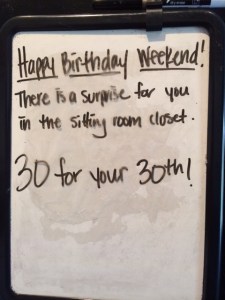 Happy Birthday Weekend!
There is a surprise for you
in the sitting room closet.
30 for your 30th!